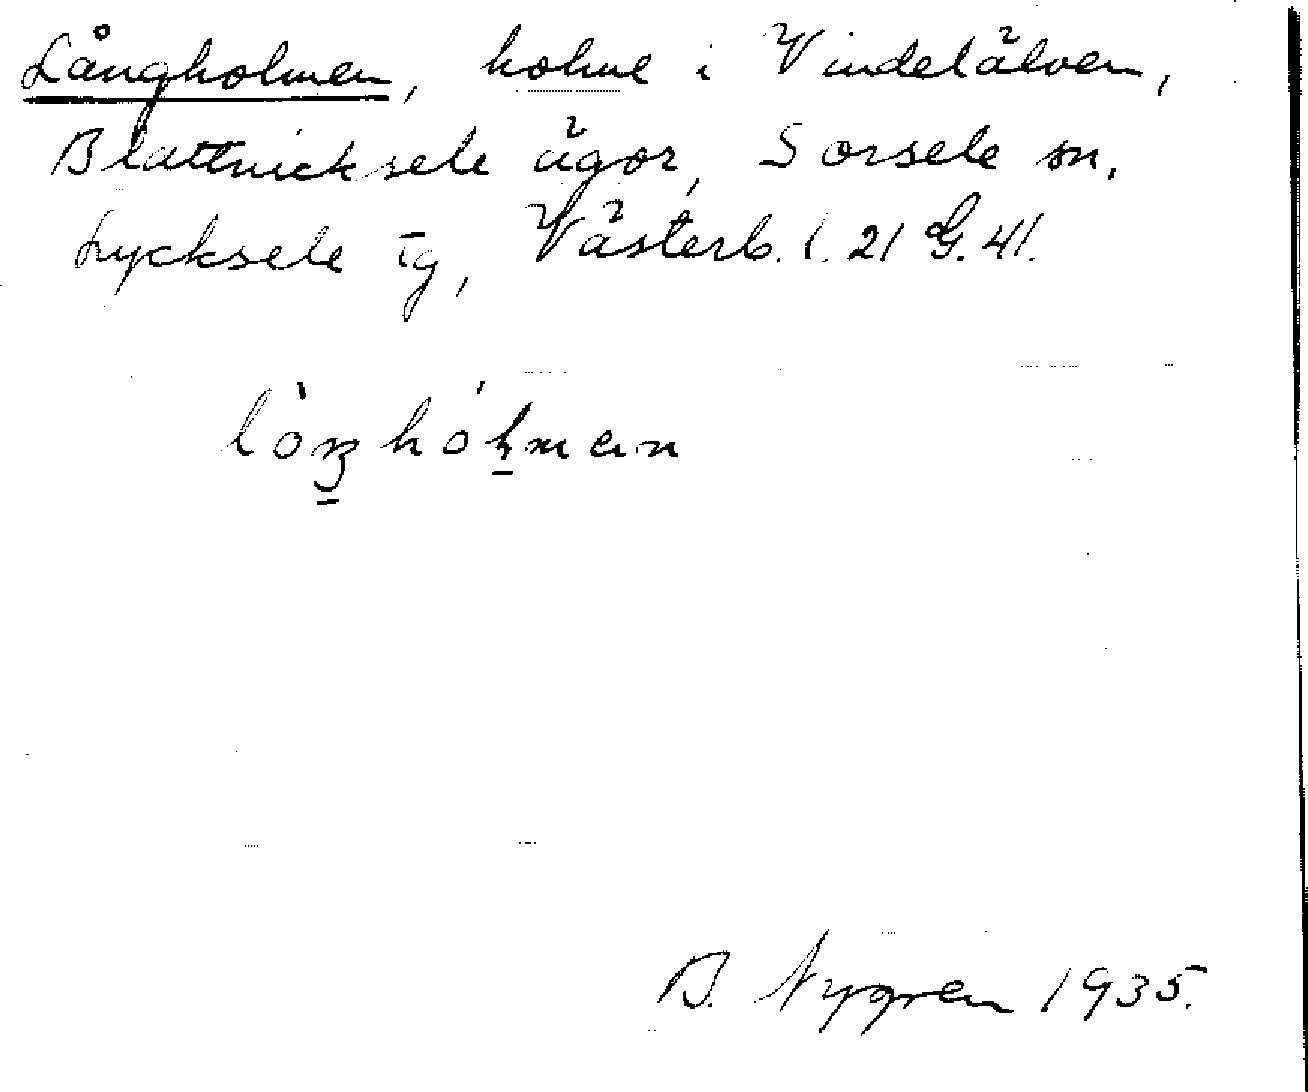 Långholmen, holme i Vindelälven,
Blattnicksele ägor, Sorsele sn,
Lycksele tg, Västerb. l. 21 G. 41.
lòŋhólmen
B. Nygren 1935.